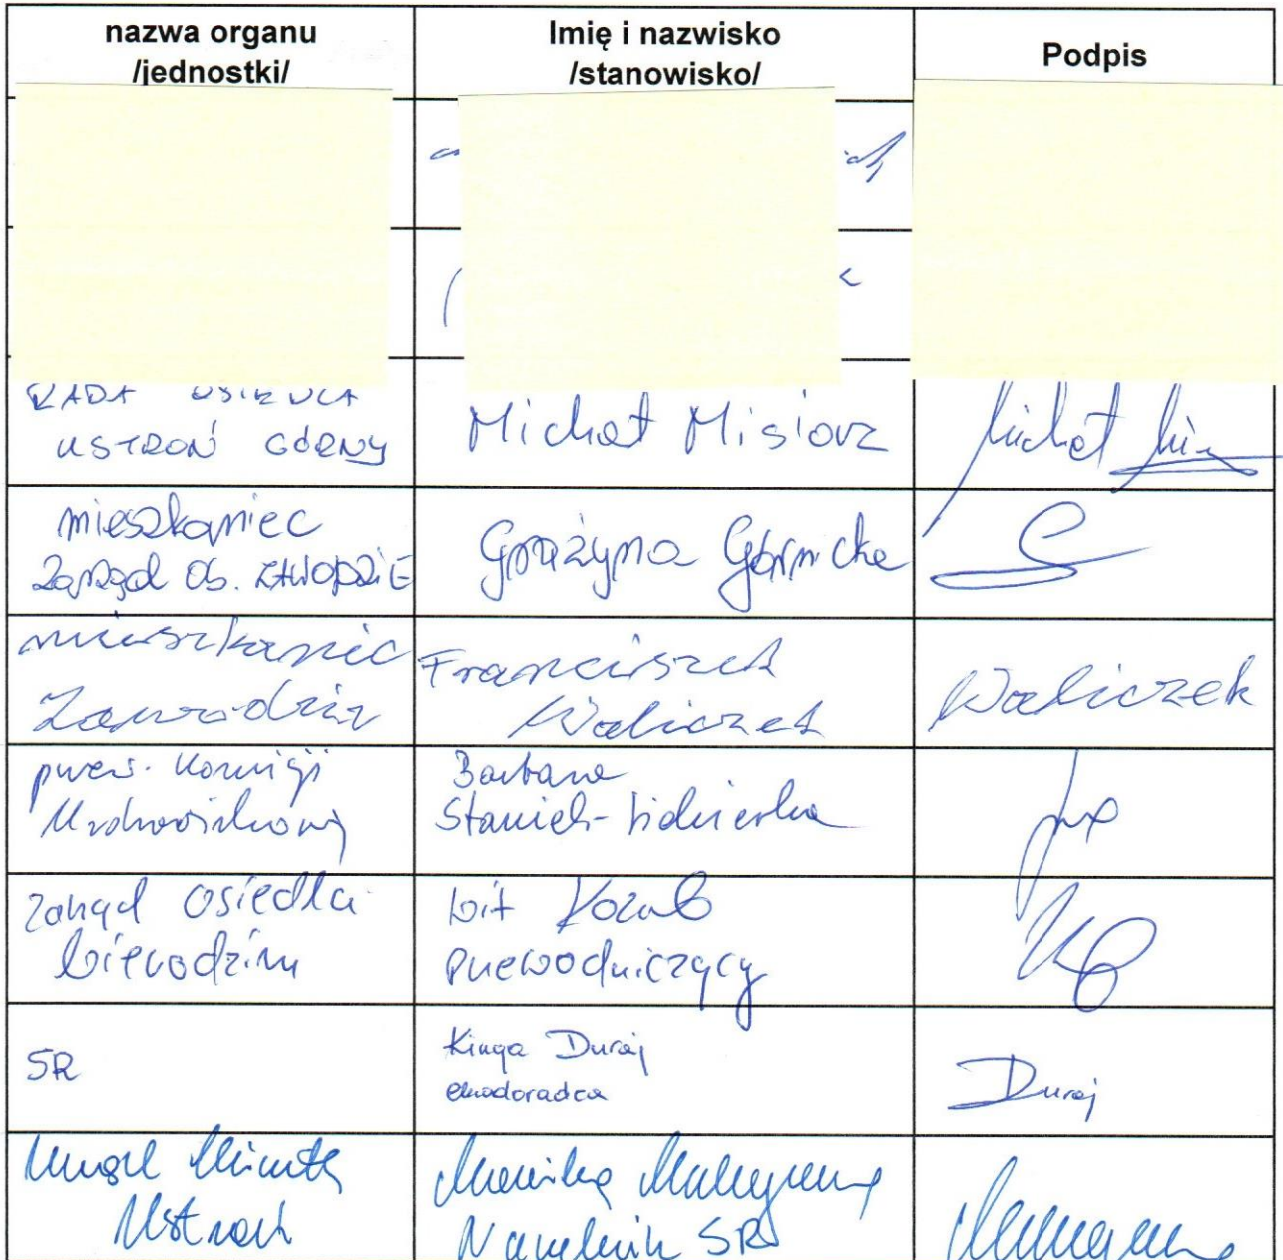 nazwa organu
/jednostki/
Imię i nazwisko
/stanowisko/
Podpis
RADA OSIEDLA
USTROŃ GÓRNY
Michał Misiorz
Michał
mieszkaniec
Zarząd Os. ZAWODZIE
Grażyna Górnicka
mieszkaniec
Zawodzie
Franciszek
Waliczek
Waliczek
przew. Komisji
Barbara
Staniek-
Zarząd Osiedla
Nierodzim
Wit Kozub
przewodniczący
SR
Kinga Duraj
ekodoradca
Duraj
Urząd Miasta
Ustroń
Monika
Naczelnik SR